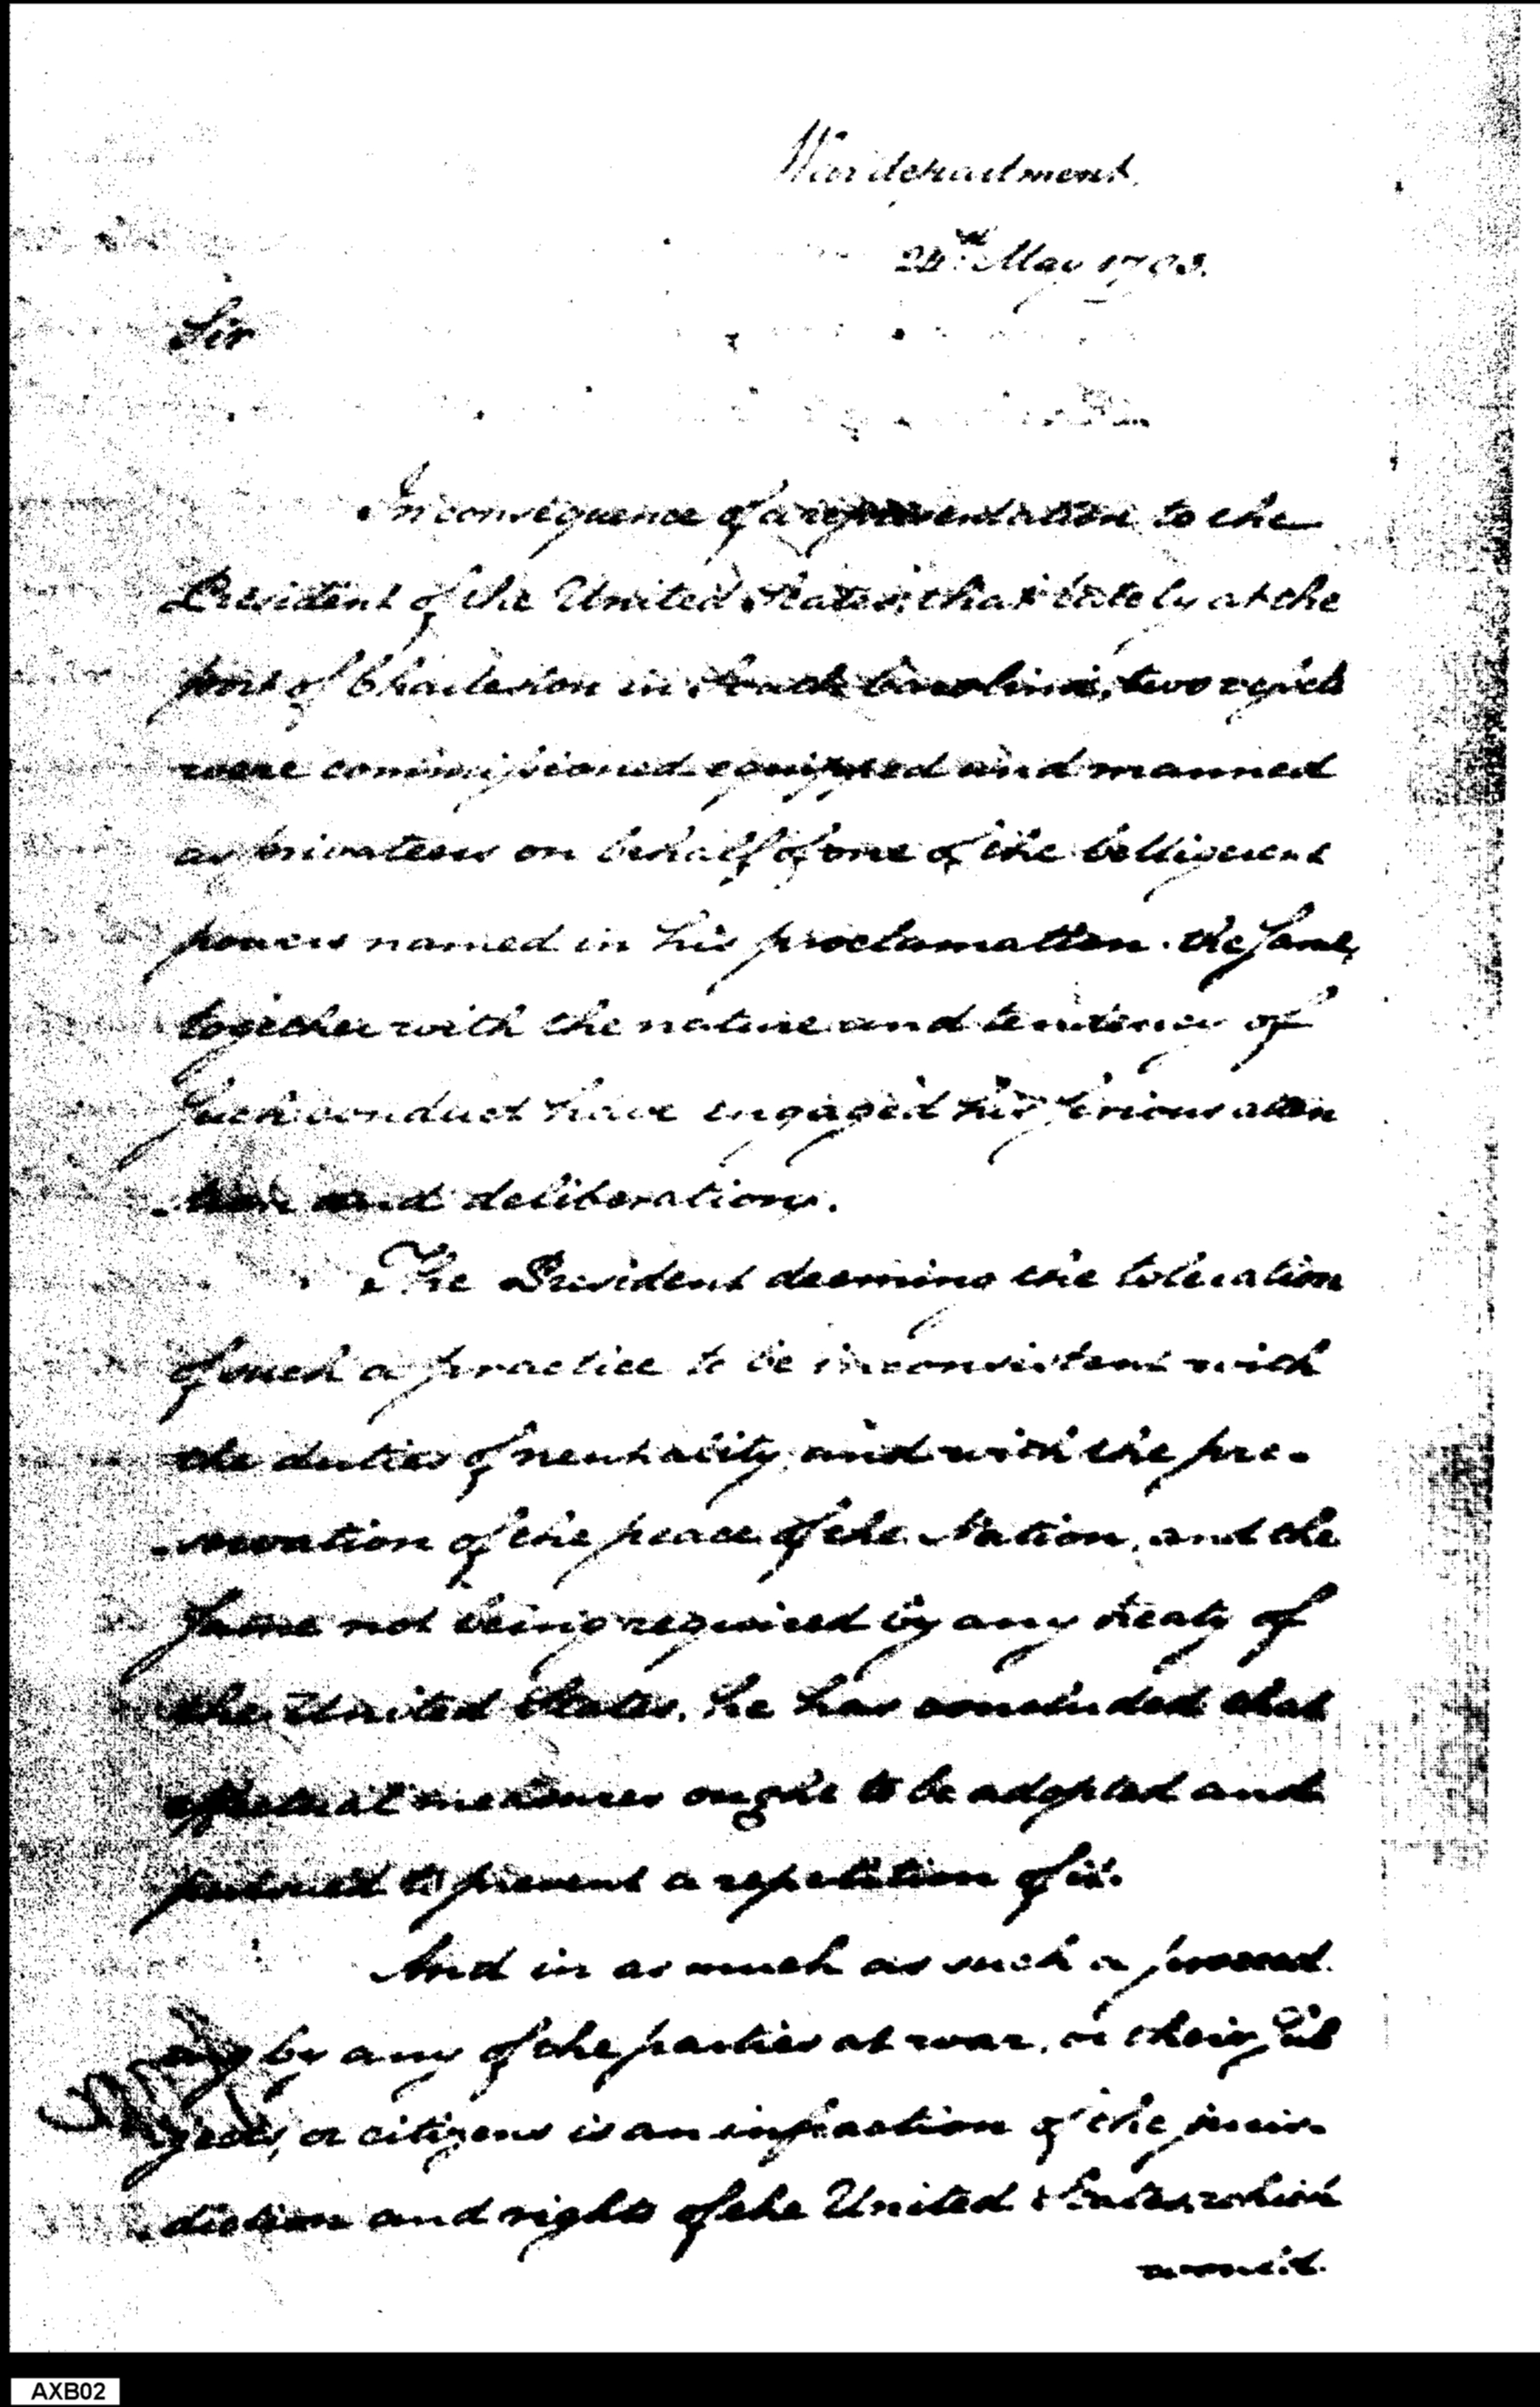 War department.
24th May 1793.
Sir
In consequence of a representation to the
President of the United States, that lately at the
port of Charleston in South Carolina, two vessels
were commissioned equipped and manned
as privateers on behalf of one of the belligerent
powers named in his proclamation. the same,
together with the nature and tendency of
such conduct have engaged his serious atten
-tion and deliberation.
The President deeming the toleration
of such a practice to be inconsistent with
the duties of neutrality, and with the pre-
-servation of the peace of the Nation, and the
same not being required by any treaty of
the United States, he has concluded that
effectual measures ought to be adopted and
pursued to prevent a repetition of it.
And in as much as such a proceed
ing by any of the parties at war, or their sub
jects, or citizens is an infraction of the juris-
-diction and rights of the United States, which
would.
AXB02